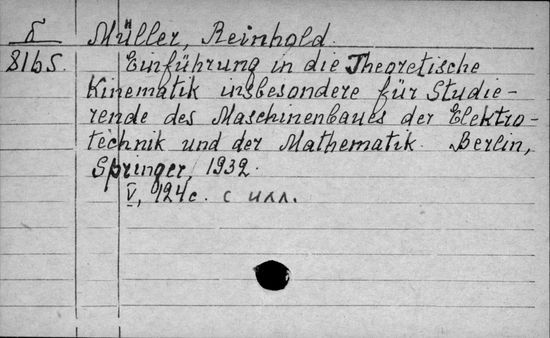 Müller, Reinhold.
8165.
Einführung in die Theoretische
Kinematik insbesondere für Studie-
rende des Maschinenbaues der Elektro-
technik und der Mathematik. Berlin,
Springer, 1932.
V, 124 с. с илл.